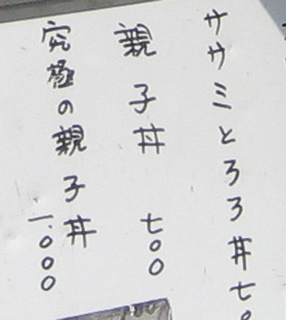 ササミとろろ丼七〇
親子丼 七〇〇
究極の親子丼 一.〇〇〇